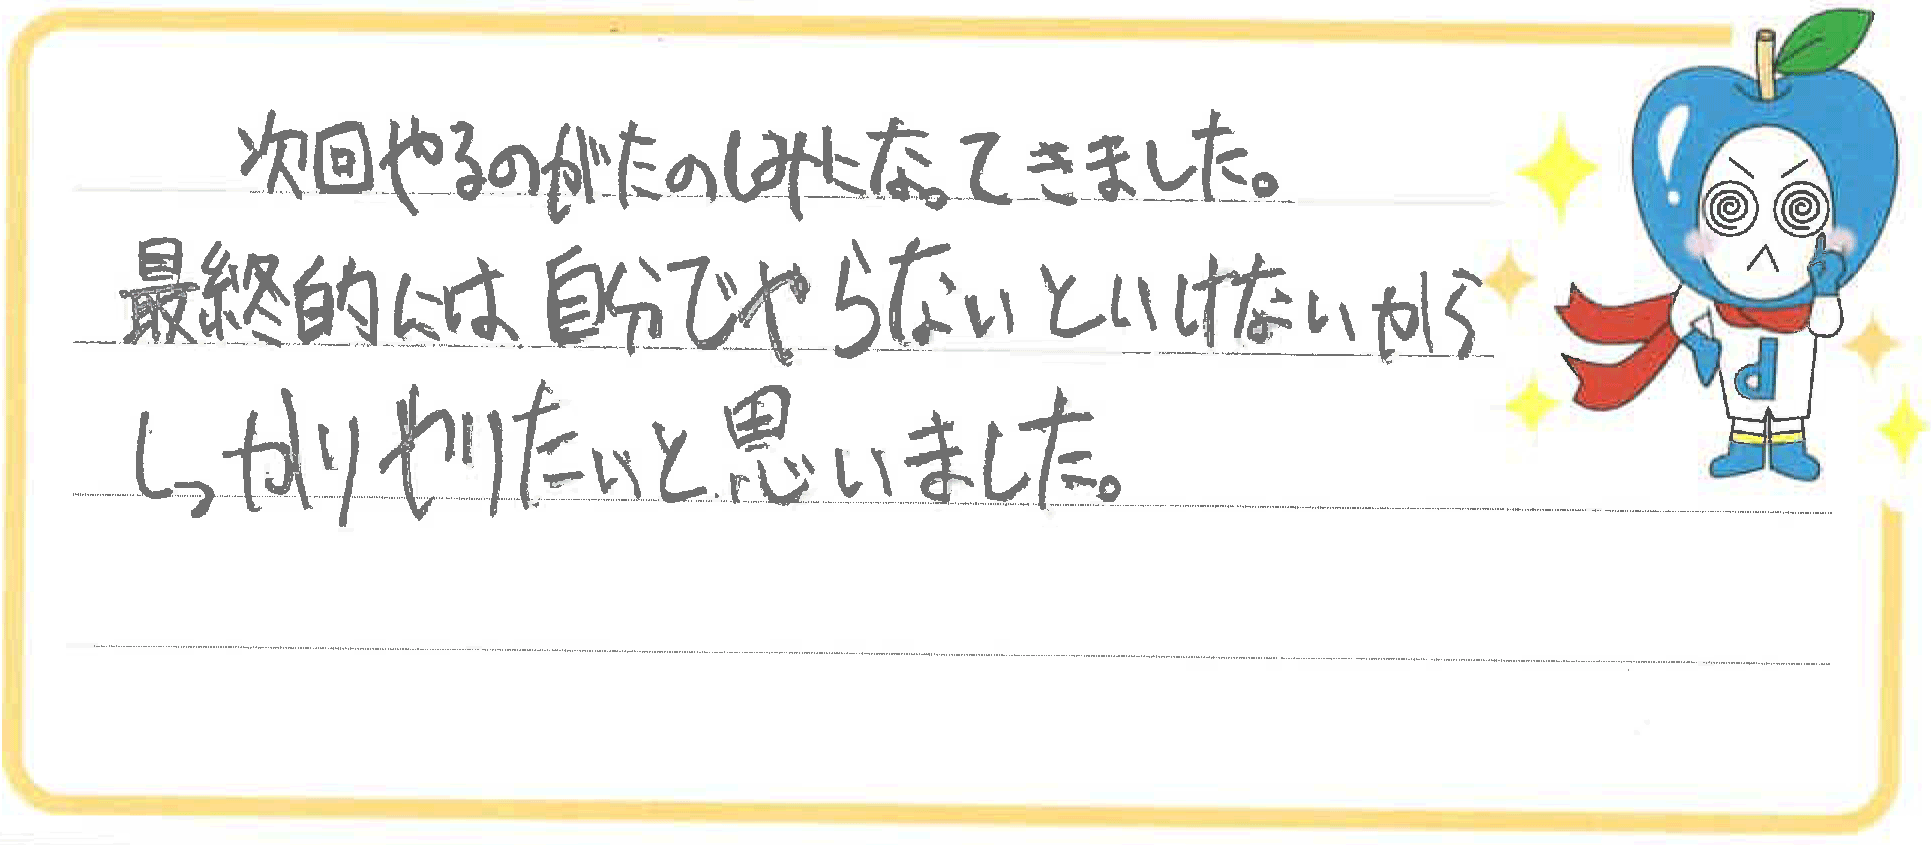 次回やるのがたのしみになってきました。
最終的には自分でやらないといけないから
しっかりやりたいと思いました。
d